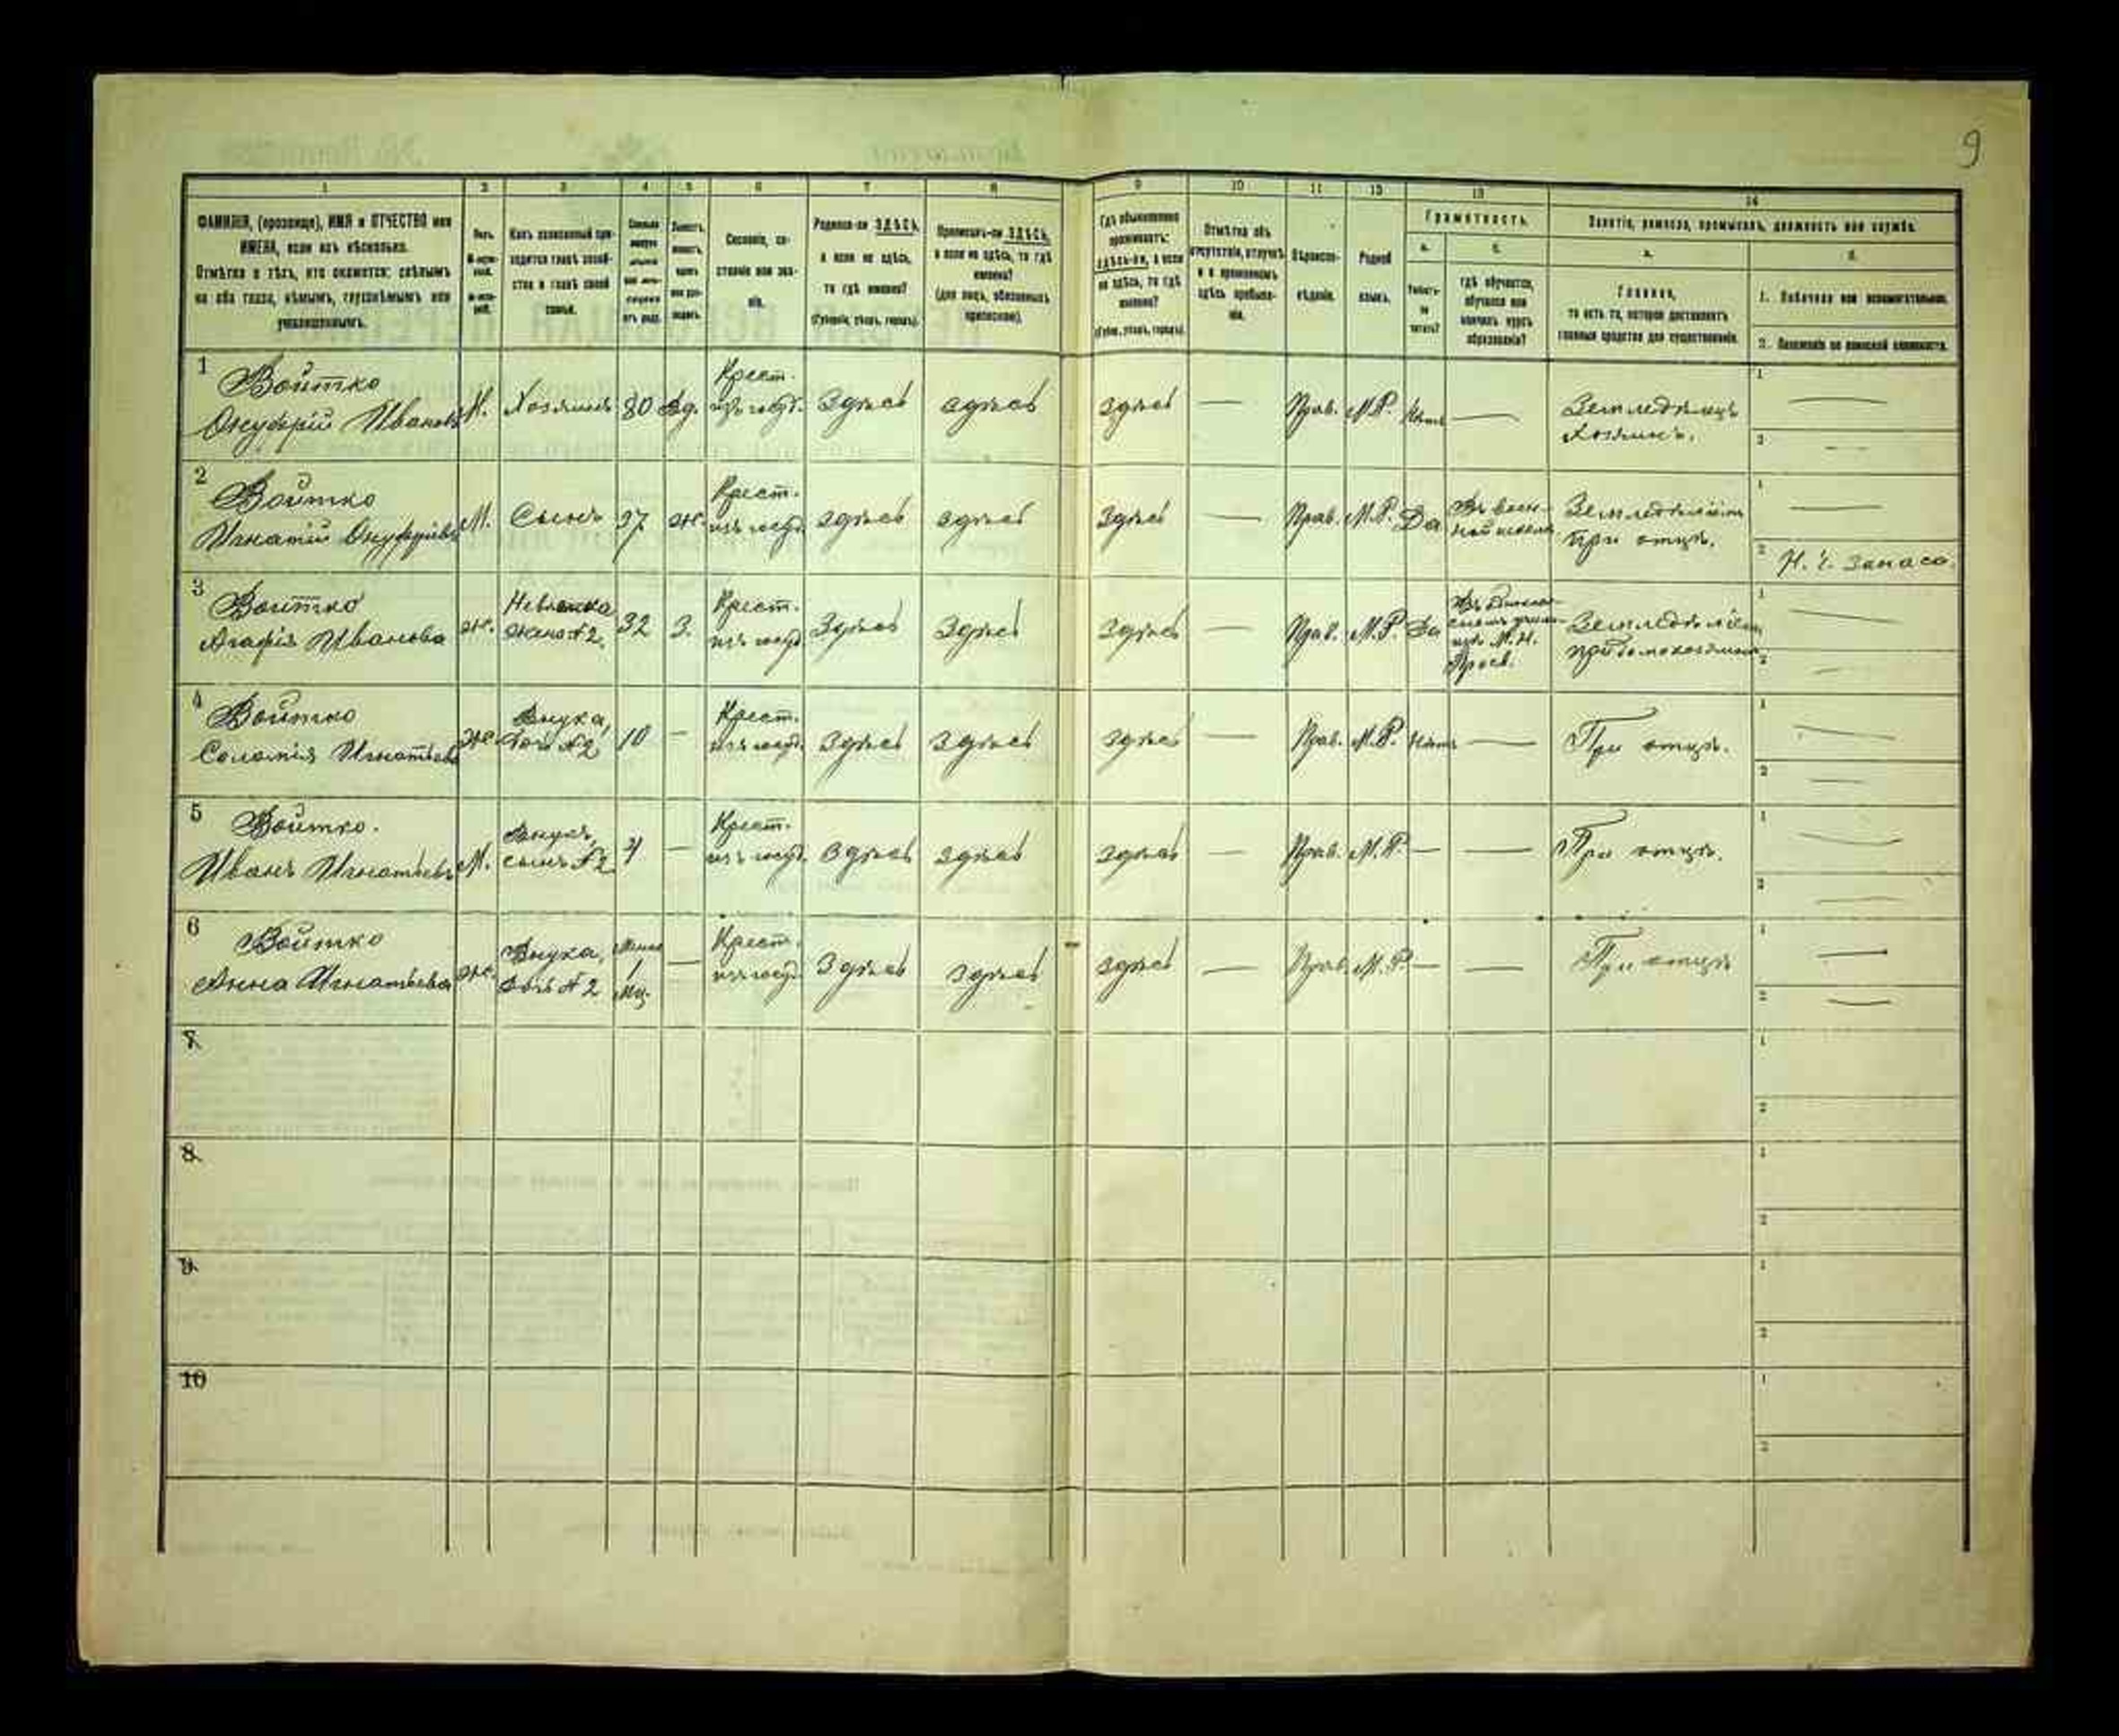 9
1 2 3 4 5 6 7 8 9 10 11 12 13 14
ФАМИЛІЯ, (прозвище), ИМЯ и ОТЧЕСТВО или
ИМЕНА, если ихъ нѣсколько.
Отмѣтка о тѣхъ, кто окажется: слѣпымъ
на оба глаза, нѣмымъ, глухонѣмымъ или
умалишеннымъ.
Полъ.
Какъ записанный при-
ходится главѣ хозяй-
ства и главѣ своей
семьи.
Сословіе, со-
стояніе или зва-
ніе.
Родился-ли ЗДѢСЬ,
а если не здѣсь,
то гдѣ именно?
(Губернія, уѣздъ, городъ).
Приписанъ-ли ЗДѢСЬ,
а если не здѣсь, то гдѣ
именно?
(для лицъ, обязанныхъ
припискою).
Гдѣ обыкновенно
проживаетъ:
здѣсь-ли, а если
не здѣсь, то гдѣ
именно?
(Губ., уѣздъ, городъ).
Отмѣтка объ
отсутствіи, отлучкѣ
и о временномъ
здѣсь пребыва-
ніи.
Вѣроиспо-
вѣданіе.
Родной
языкъ.
Грамотность.
а.
Умѣетъ-
ли
читать?
б.
гдѣ обучается,
обучался или
кончилъ курсъ
образованія?
Занятіе, ремесло, промыселъ, должность или служба.
а.
Главное,
то есть то, которое доставляетъ
главныя средства для существованія.
б.
1. Побочное или вспомогательное.
2. Положеніе по воинской повинности.
1 Войтко
Онуфрій Ивановъ М. Хозяинъ 80 вд. Крест. изъ госуд. Здѣсь здѣсь здѣсь — Прав. М.Р. Нѣтъ — Земледѣлецъ
хозяинъ.
2 Войтко
Игнатій Онуфріевъ М. Сынъ 37 ж. Крест. изъ госуд. здѣсь здѣсь Здѣсь — Прав. М.Р. Да Въ воен-
ной школѣ Земледѣліе
при отцѣ.
Н. ч. запаса.
3 Войтко
Агафія Иванова ж. Невѣстка
жена №2. 32 З. Крест. изъ госуд. Здѣсь Здѣсь Здѣсь — Прав. М.Р. Да М. Н.
Просв. Земледѣліе
4 Войтко
Соломія Игнатьева ж. Внука,
дочь №2 10 — Крест. изъ госуд. Здѣсь Здѣсь здѣсь — Прав. М.Р. Нѣтъ — При отцѣ.
5 Войтко.
Иванъ Игнатьевъ М. Внукъ,
сынъ №2 4 — Крест. изъ госуд. Здѣсь здѣсь здѣсь — Прав. М.Р. — — При отцѣ.
6 Войтко
Анна Игнатьева ж. Внука,
дочь №2 Менѣе
1
мц. — Крест. изъ госуд. Здѣсь здѣсь здѣсь — Прав. М.Р. — — При отцѣ
7
8
9
10